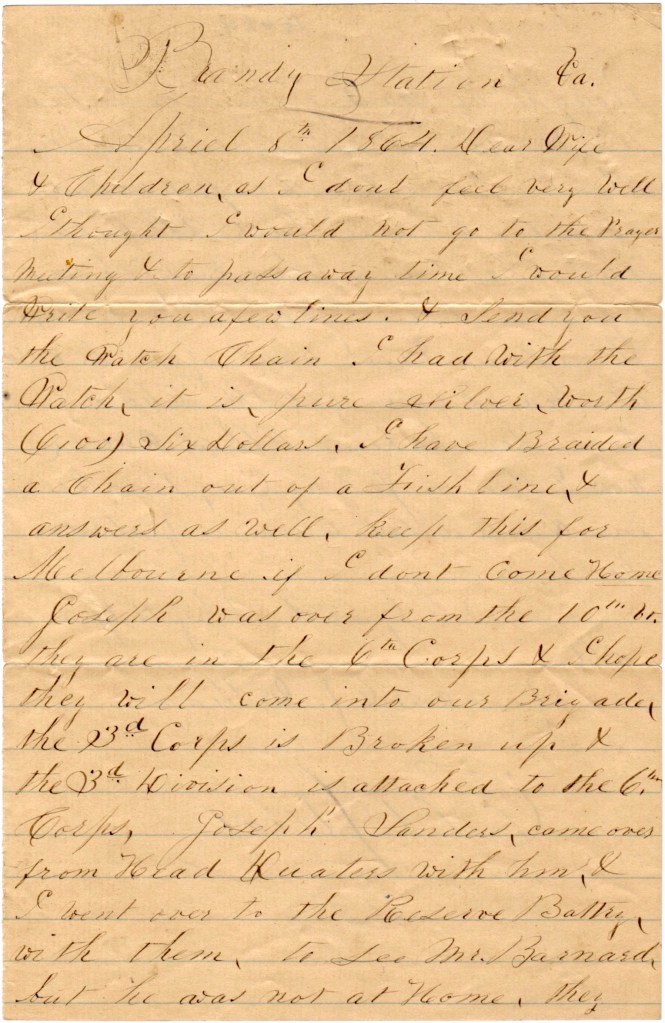 Brandy Station Va.
Apriel 8th 1864. Dear Wife
& Children, as I dont feel very well
I thought I would not go to the Prayer
meeting & to pass away time I would
Write you a few lines. & Send you
the Watch Chain I had with the
Watch, it is, pure Silver, worth
(6,00) Six Dollars, I have Braided
a Chain out of a Fish line, &
answers as well, keep this for
Melbourne if I dont Come Home
Joseph was over from the 10th Vt.
they are in the 6th Corps & I hope
they will come into our Brigade,
the 3d Corps is Broken up &
the 3d Division is attached to the 6th
Corps, Joseph Sanders, came over
from Head Quaters with him, &
I went over to the Reserve Battry,
with them, to See Mr. Barnard,
but he was not at Home, they